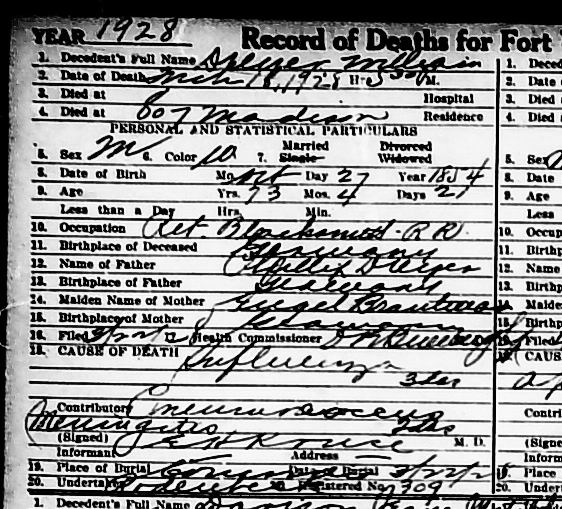 YEAR 1928 Record of Deaths for Fort
1. Decedent's Full Name Dreyer William
2. Date of Death Mch 18, 1928 Hr. 5 30 M.
3. Died at Hospital
4. Died at 807 Madison Residence
PERSONAL AND STATISTICAL PARTICULARS
5. Sex M 6. Color W 7. Married Single Divorced Widowed
8. Date of Birth Mo. Oct Day 27 Year 1854
9. Age Yrs. 73 Mos. 4 Days 21
Less than a Day Hrs. Min.
10. Occupation Ret Blacksmith - R R
11. Birthplace of Deceased Germany
12. Name of Father Phillip Dreyer
13. Birthplace of Father Germany
14. Maiden Name of Mother
15. Birthplace of Mother Germany
16. Filed Health Commissioner
18. CAUSE OF DEATH Influenza
3 das
Contributory Pneumococcus
Meningitis 2 das
(Signed) E H Kruse M. D.
Informant Address
19. Place of Burial Date of Burial
20. Undertaker Registered No. 309
1. Decedent's Full Name
1. Deced
2. Date
3. Died
4. Died
5. Sex
8. Date
9. Age
Less
10. Occup
11. Birthp
12. Name
13. Birthp
14. Maide
15. Birthp
16. Filed
18. CAUS
Contri
(Signe
Inform
19. Place
20. Under